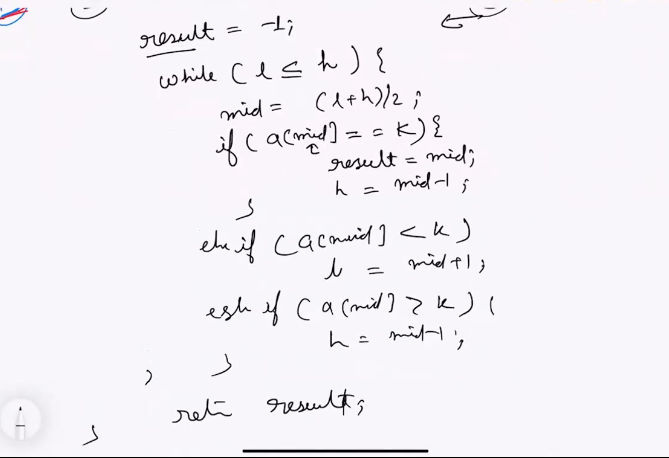 result = -1;
while (l ≤ h) {
mid = (l+h)/2;
if (a[mid] == k) {
result = mid;
h = mid-1;
}
else if (a[mid] < k)
l = mid+1;
else if (a(mid] > k) {
h = mid-1;
}
}
retn result;
}